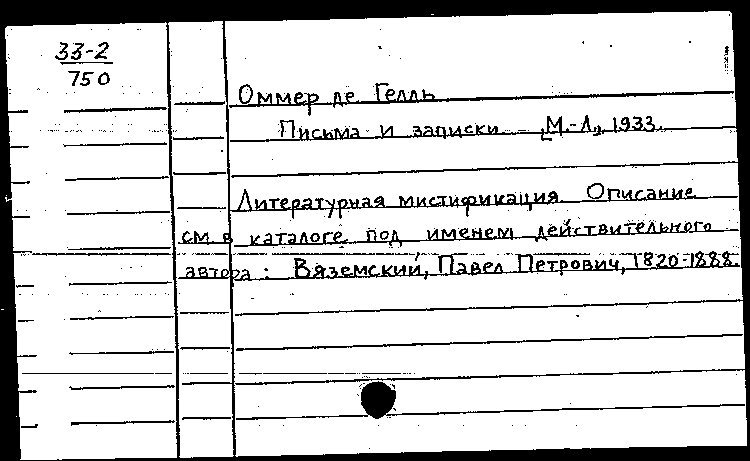 33-2
750
Оммер де Гелль
Письма и записки. [М.-Л., 1933.
Литературная мистификация. Описание
см. в каталоге под именем действительного
автора: Вяземский, Павел Петрович, 1820-1888.